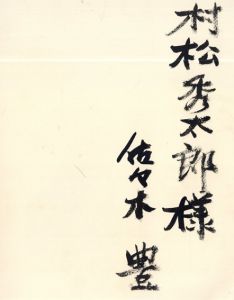 村松秀太郎様
佐々木 豊